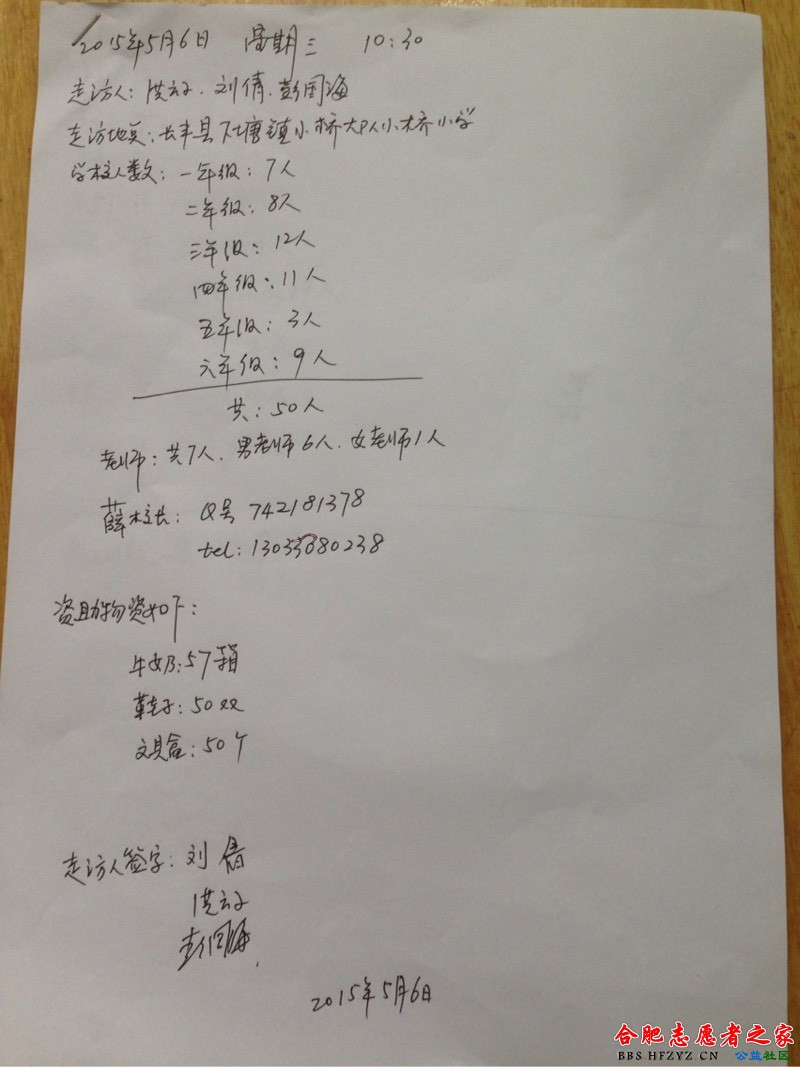 2015年5月6日 星期三 10:30
走访人:洪云子.刘倩.彭国海
走访地点:长丰县下塘镇小桥大小桥小学
学校人数:一年级:7人
二年级:8人
三年级:12人
四年级:11人
五年级:3人
六年级:9人
共:50人
老师:共7人.男老师6人.女老师1人
薛校长:Q号 742181378
tel:1303380238
资助物资如下:
牛奶:57箱
鞋子:50双
文具盒:50个
走访人签字:刘倩
洪云子
彭国海
2015年5月6日
合肥志愿者之家
BBS.HFZYZ.CN 公益社区